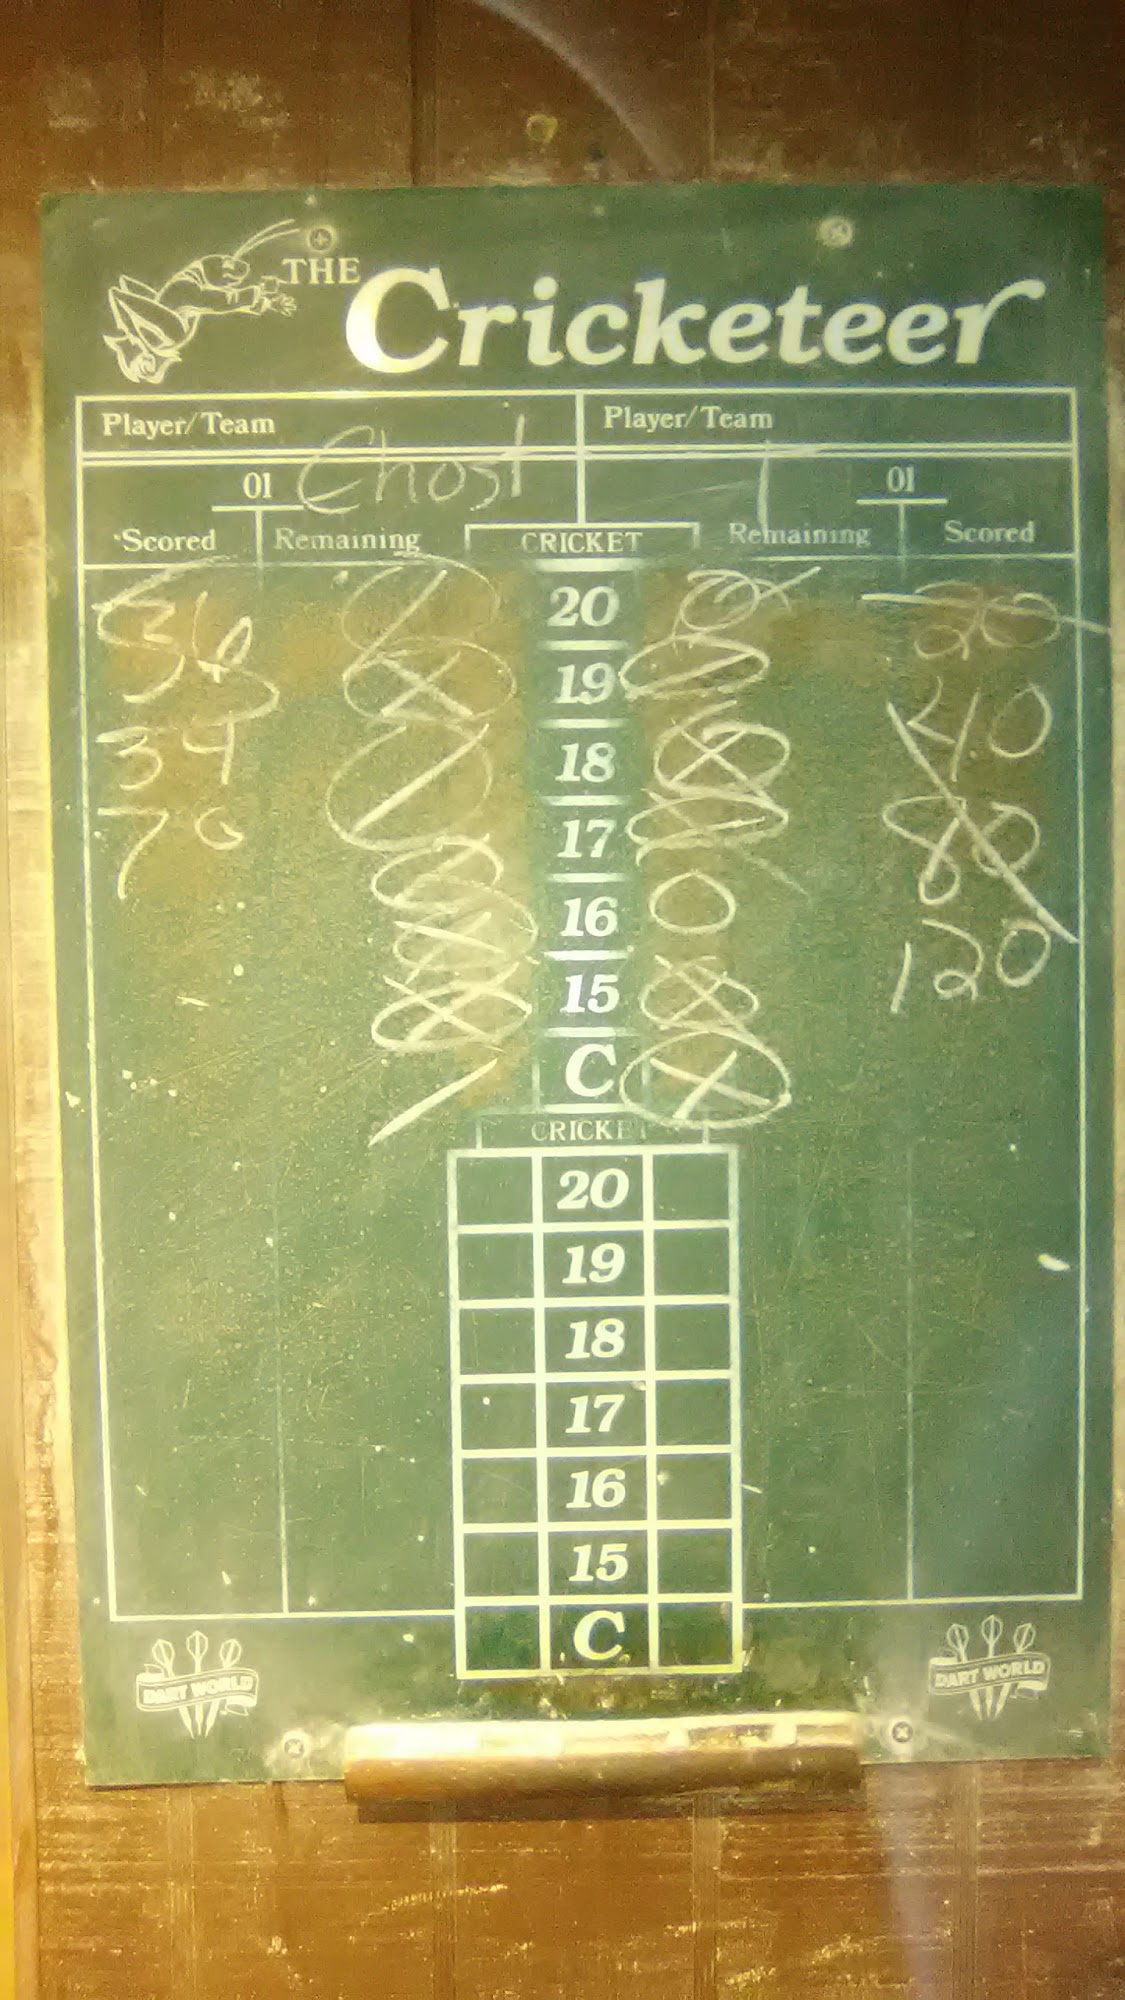 THE
Cricketeer
Player/Team Player/Team
01 Ghost 01
Scored Remaining CRICKET Remaining Scored
36 20 20
19
34 18 40
70 17 80
16
15 120
C
CRICKET
20
19
18
17
16
15
C
DART WORLD DART WORLD